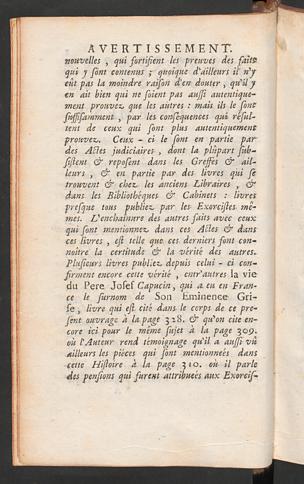 AVERTISSEMENT.
nouvelles, qui fortifient les preuves des faits
qui y sont contenus; quoique d'ailleurs il n'y
eût pas la moindre raison d'en douter, qu'il y
en ait bien qui ne soient pas aussi autentique-
ment prouvez que les autres: mais ils le sont
suffisamment, par les consequences qui resul-
tent de ceux qui sont plus autentiquement
prouvez. Ceux-ci le sont en partie par
des Actes judiciaires, dont la plûpart sub-
sistent & reposent dans les Greffes & ail-
leurs, & en partie par des livres qui se
trouvent & chez les anciens Libraires, &
dans les Bibliothéques & Cabinets: livres
presque tous publiez par les Exorcistes mê-
mes. L'enchaînure des autres faits avec ceux
qui sont mentionnez dans ces Actes & dans
ces livres, est telle que ces derniers font con-
noître la certitude & la vérité des autres.
Plusieurs livres publiez depuis celui-ci con-
firment encore cette vérité, entr'autres la vie
du Pere Josef Capucin, qui a eu en Fran-
ce le surnom de Son Eminence Gri-
se, livre qui est cité dans le corps de ce pre-
sent ouvrage à la page 328. & qu'on cite en-
core ici pour le même sujet à la page 309.
où l'Auteur rend témoignage qu'il a aussi vû
ailleurs les pièces qui sont mentionnées dans
cette Histoire à la page 310. où il parle
des pensions qui furent attribuées aux Exorcis-